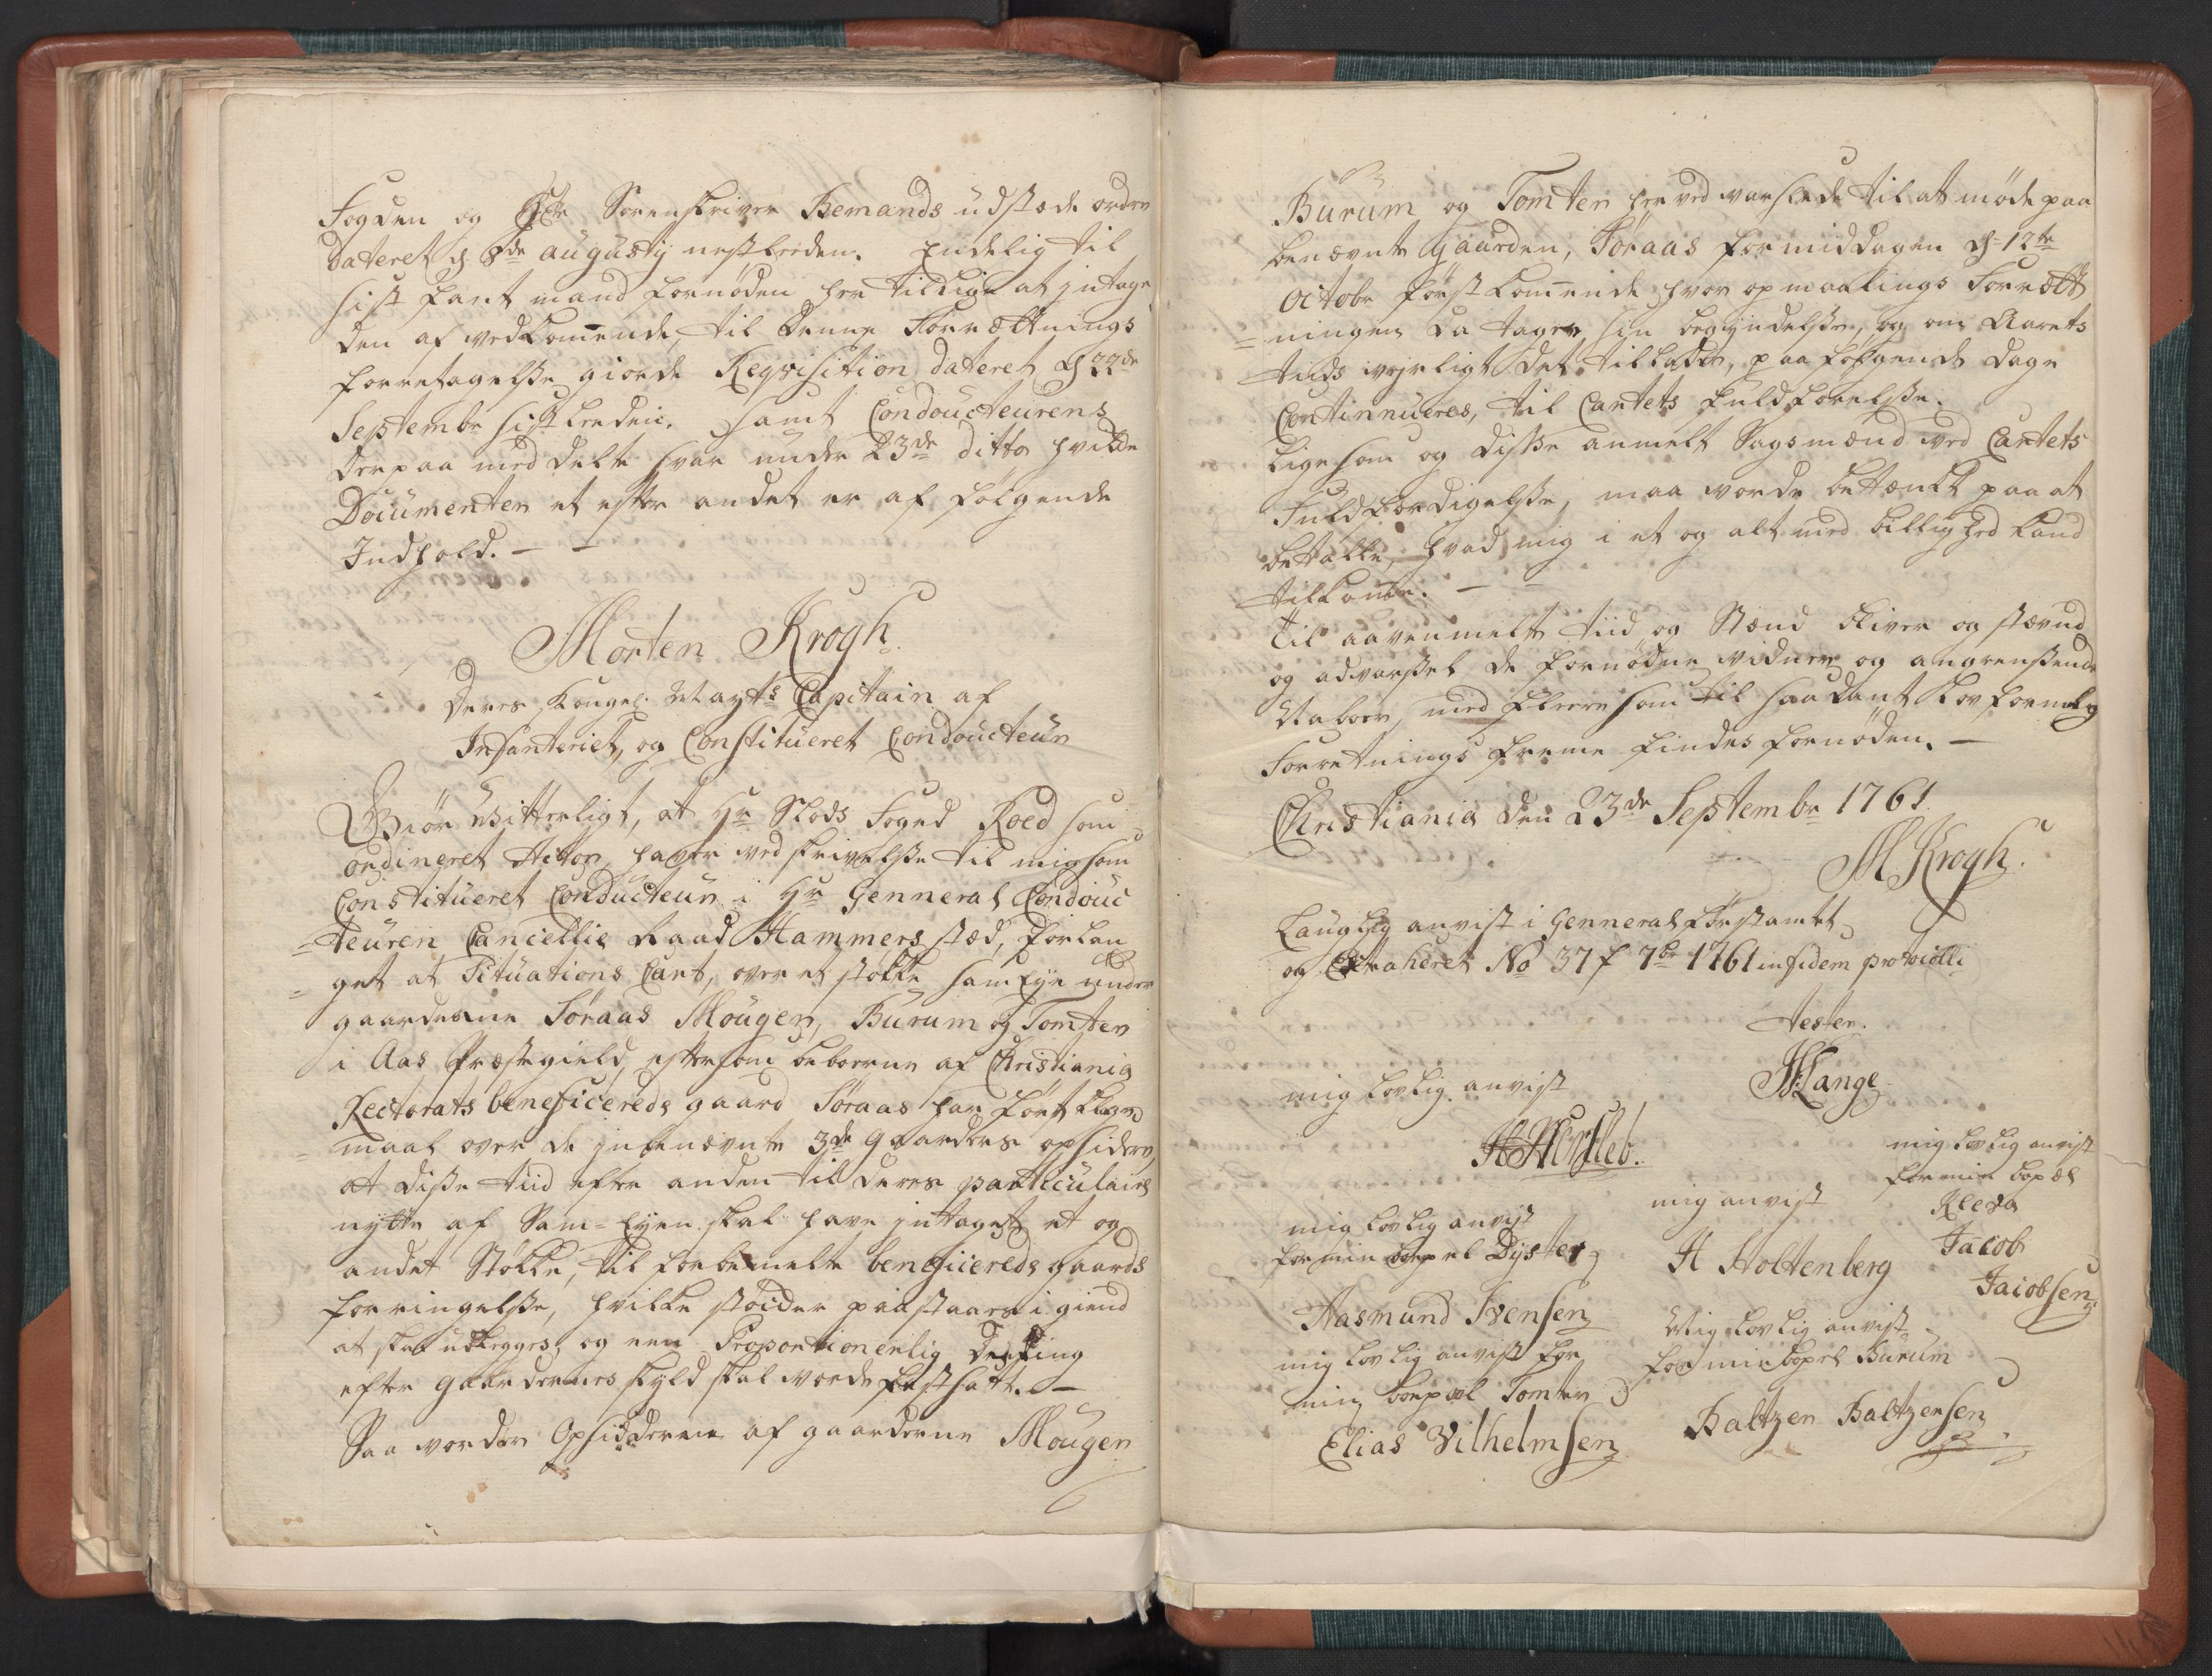 Fogden og Hr Sorenskriver Bemands udstæde ordre
dateret d 8de augusty nestleeden. Endelig til
sist fant mand fornøden her tillige at intage
den af vedkommende, til denne Forrættnings
forretagelsse giorde Reqvisition dateret d 22de
Septembr sistleeden. samt Condoucteurens
derpaa meddelte svar under 23de ditto hvilke
Documenter et efter andet er af følgende
Indhold. —
Morten Krogh.
Deres Kongel: Mayts Capitain af
Infanteriet, og Constitueret Condoucteur
Giør Vitterligt, at Hr Slods Foged Roed som
ordineret Actor, haver ved skrivelsse til mig som
Constitueret Conducteur i Hr Genneral Condouc
=teuren Cancellie Raad Hammers stæd, forlan
=get at Situations Cart, over et støkke samEye under
gaarderne Søraas Mougen, Burum og Tomter
i Aas Præstegield, eftersom beboerne af Christiania
Rectorats beneficerede gaard Søraas har ført klage
=maal over de jnbenævnte 3de gaarders opsidere,
at disse tiid efter anden til deres particulaire
nytte af Sam=Eyen skal have jntaget et og
andet Støkke, til forbemelte beneficerede gaards
forringelsse, hvilke støider paastaaes igiend
at skal udlegges, og een Proportionerlig Deeling
efter gaardernes skyld skal worde fastsatt. —
Saa worder Opsidderne af gaarderne Mougen
Burum og Tomter her ved varslede til at møde paa
benævnte gaarden, Søraas formiddagen d 12te
octobr først kommende hvor opmaalings Forrætt
=ningen da tager sin begyndelsse, og om Aarets
tiids vejrligt det tillader, paa følgende dage
Continnueres, til Cartets fuldførelsse.
Ligesom og disse anmelt Sagsmænd ved Cartets
Fuldferdigelsse, maa worde betænkt paa at
betalle, hvad mig i et og alt med billighed kand
tilkomme. —
Til aavenmelte tiid og Stænd bliver og stævnd
og advarsset de fornødne vidner og angrenssende
Naboer, med fleere som til saadant Lovformelig
Forretnings fremme findes fornøden. —
Christiania den 23de Septembr 1761.
M Krogh.
Lauglig anvist i Genneral Forstamtet
og Extraheret No 37 f 7br 1761 in fidem protocolli
tester.
N Lange
mig lovlig anvist
H Hersleb.
mig lovlig anvist
for min bopæl
Kleva
Jacob
Jacobsen
mig lovlig anvist
for min bopel Dyster
Aasmund Svensen
mig anvist
H Holtenberg
mig lovlig anvist for
min boepæl Tomter
Elias Vilhelmsen
Mig lovlig anvist
for min bopel Burum
Baltzer Baltzersen